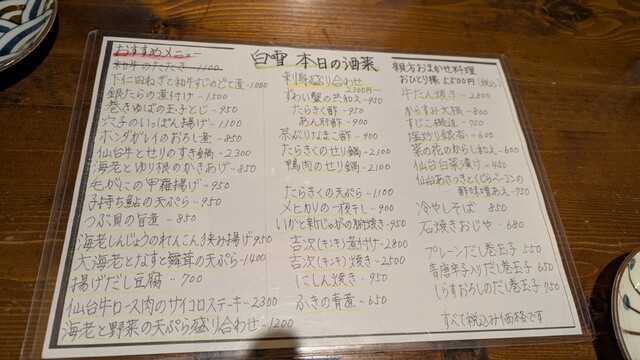 白雪 本日の酒菜
おすすめメニュー
和牛のたたき - 1100
下仁田ねぎと和牛すじのどて煮 - 1000
銀たらの煮付け - 1500
巻きゆばの玉子とじ - 950
穴子のいっぱん揚げ - 1100
ホンダガレイのおろし煮 - 850
仙台牛とセリのすき鍋 - 2300
海老とゆり根のかきあげ - 850
毛がにの甲羅揚げ - 950
子持ち鮎の天ぷら - 950
つぶ貝の旨煮 - 850
海老しんじょうのれんこん挟み揚げ 950
大海老となすと舞茸の天ぷら - 1400
揚げだし豆腐 - 700
仙台牛ロース肉のサイコロステーキ - 2300
海老と野菜の天ぷら盛り合わせ - 1200
刺身盛り合わせ
2300円~
ずわい蟹の共和え - 950
たらきく酢 - 950
あん肝酢 - 900
茶ぶりなまこ酢 - 900
たらきくの鍋 - 2100
鴨肉のせり鍋 - 2100
たらきくの天ぷら - 1100
メヒカリの一夜干し - 900
いかと新じゃがの炒焼き - 950
吉次(キンキ)煮付け - 2800
吉次(キンキ)焼き - 2500
にしん焼き - 950
ふきの青煮 - 650
親方おまかせ料理
おひとり様 5,500円(税込)
牛たん焼き - 2800
からすみ大根 - 800
すじこ 700
塩炒り銀杏 - 600
菜の花のからし和え - 600
仙台白菜漬け - 450
仙台あさつきとくじらベーコンの
酢味噌和え - 750
冷やしそば - 850
石焼きおじや - 680
プレーンだし巻玉子 550
青唐辛子入りだし巻玉子 650
しらすおろしのだし巻玉子 750
すべて税込み価格です